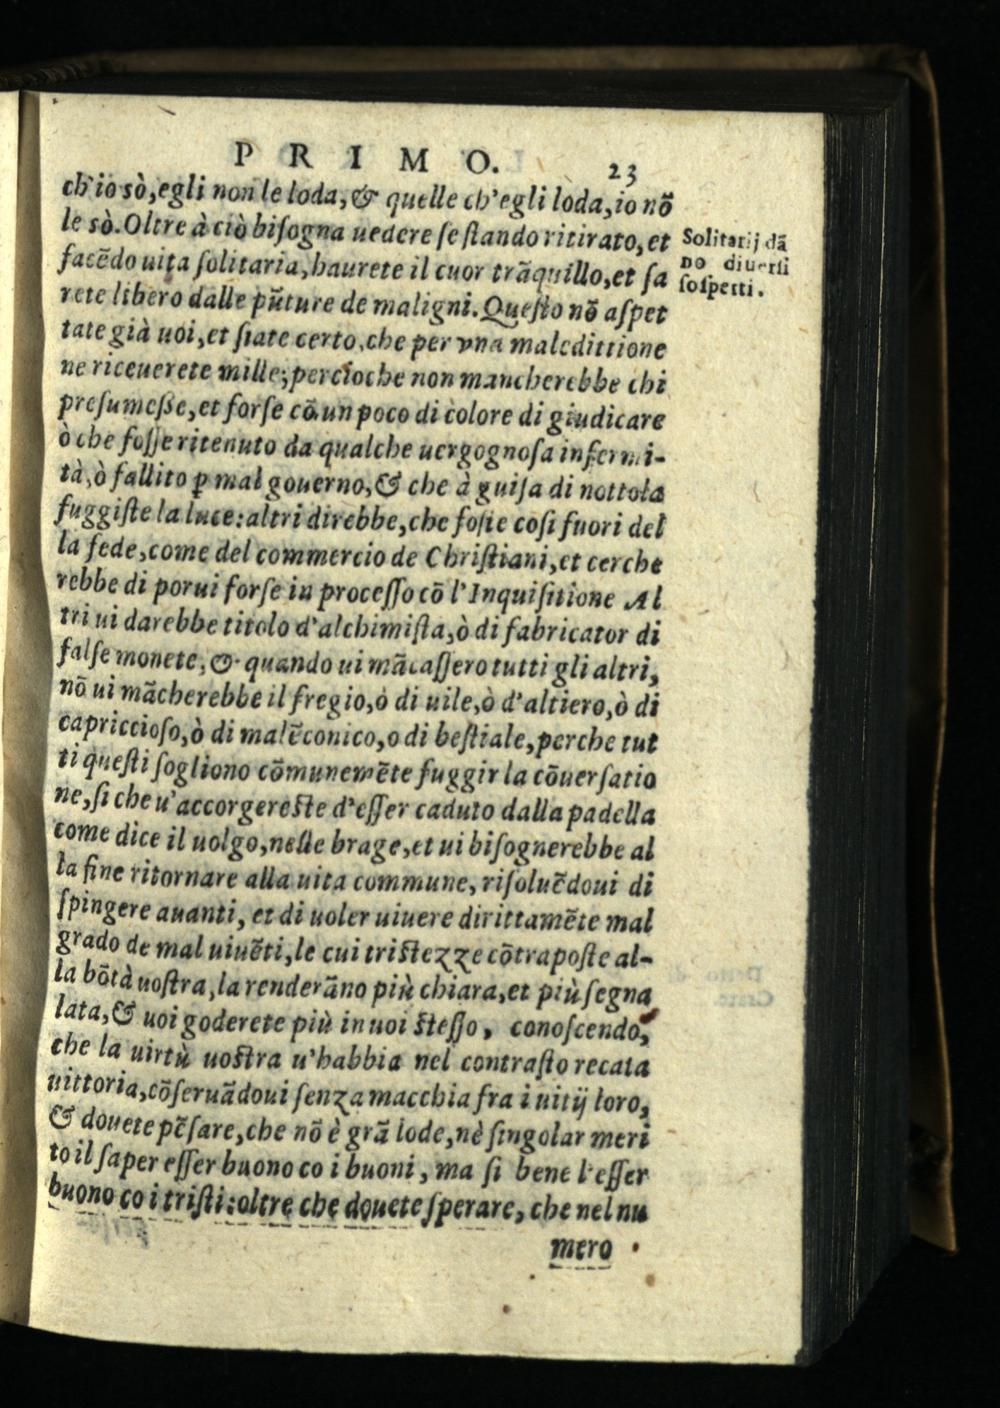 PRIMO. 23
ch'io sò, egli non le loda, & quelle ch'egli loda, io nõ
le sò. Oltre à ciò biſogna uedere ſe ſtando ritirato, et
facẽdo uita ſolitaria, haurete il cuor trãquillo, et ſa
rete libero dalle pũture de maligni. Queſto nõ aſpet
tate già uoi, et ſiate certo, che per vna maledittione
ne riceuerete mille; percioche non mancherebbe chi
preſumeſſe, et forſe cõ un poco di colore di giudicare
ò che foſſe ritenuto da qualche uergognoſa infermi-
tà, ò fallito ꝑ mal gouerno, & che à guiſa di nottola
fuggiſte la luce: altri direbbe, che foſte coſi fuori del
la fede, come del commercio de Chriſtiani, et cerche
rebbe di porui forſe in proceſſo cõ l'Inquiſitione Al
tri ui darebbe titolo d'alchimiſta, ò di fabricator di
falſe monete, & quando ui mãcaſſero tutti gli altri,
nõ ui mãcherebbe il fregio, ò di uile, ò d'altiero, ò di
capriccioſo, ò di malẽconico, o di beſtiale, perche tut
ti queſti ſogliono cõmunemẽte fuggir la cõuerſatio
ne, ſi che u'accorgereſte d'eſſer caduto dalla padella
come dice il uolgo, nelle brage, et ui biſognerebbe al
la fine ritornare alla uita commune, riſoluẽdoui di
ſpingere auanti, et di uoler uiuere dirittamẽte mal
grado de mal uiuẽti, le cui triſtezze cõtrapoſte al-
la bõtà uoſtra, la renderãno più chiara, et più ſegna
lata, & uoi goderete più in uoi ſteſſo, conoſcendo,
che la uirtù uoſtra u'habbia nel contraſto recata
uittoria, cõſeruãdoui ſenza macchia fra i uitij loro,
& douete pẽſare, che nõ è grã lode, nè ſingolar meri
to il ſaper eſſer buono co i buoni, ma ſi bene l'eſſer
buono co i triſti: oltre che douete ſperare, che nel nu
mero
Solitarij dã
no diuerſi
ſoſpetti.